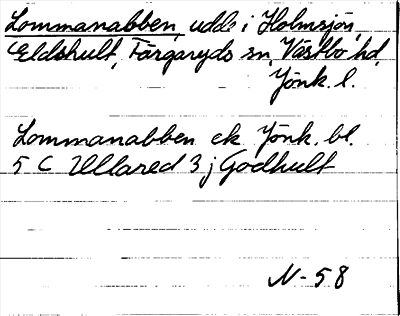 Lommanabben, udde i Holmsjön
Eldshult, Färgaryds sn, Västbo hd,
Jönk. l.
Lommanabben ek Jönk. bl.
5 C Ullared 3 j Godhult
N-58